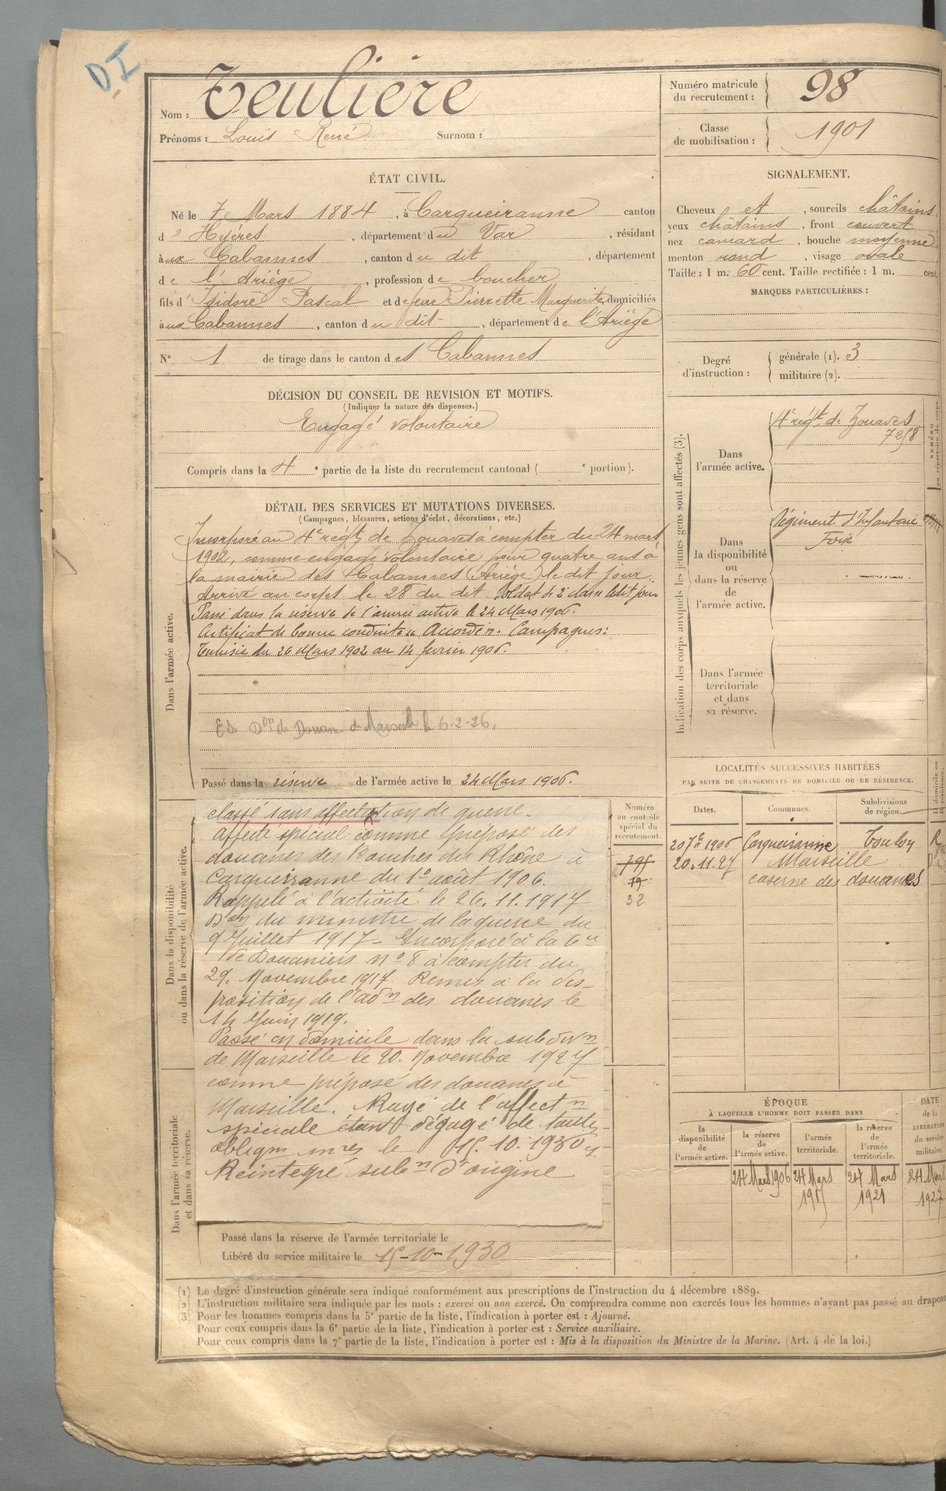 D.I
Nom : Teulière
Prénoms : Louis René Surnom :
Numéro matricule du recrutement : 98
Classe de mobilisation : 1901
ÉTAT CIVIL.
Né le 7 Mars 1884, à Carqueiranne canton
d'Hyères, département du Var, résidant
aux Cabannes, canton du dit, département
de l'Ariège, profession de boucher
fils d'Isidore Pascal et de Pierrette Marguerite, domiciliés
aux Cabannes, canton du dit, département de l'Ariège
N° 1 de tirage dans le canton des Cabannes
SIGNALEMENT.
Cheveux et, sourcils châtains
yeux châtains, front couvert
nez camard, bouche moyenne
menton rond, visage ovale
Taille : 1 m. 60 cent. Taille rectifiée : 1 m. cent.
MARQUES PARTICULIÈRES :
Degré d'instruction : générale (1). 3
militaire (2).
DÉCISION DU CONSEIL DE REVISION ET MOTIFS.
(Indiquer la nature des dispenses.)
Engagé volontaire
Compris dans la 4e partie de la liste du recrutement cantonal ( e portion).
DÉTAIL DES SERVICES ET MUTATIONS DIVERSES.
(Campagnes, blessures, actions d'éclat, décorations, etc.)
Dans l'armée active.
Incorporé au 4e régt de Zouaves à compter du 24 mars
1902, comme engagé volontaire pour quatre ans à
la mairie des Cabannes (Ariège) le dit jour.
Arrivé au corps le 28 du dit. Soldat de 2e classe le dit jour
Passé dans la réserve de l'armée active le 24 Mars 1906.
Certificat de bonne conduite Accordé. Campagnes :
Tunisie du 26 Mars 1902 au 14 février 1906.
de Douane de Marseille le 6-2-26.
Passé dans la réserve de l'armée active le 24 Mars 1906.
Indication des corps auxquels les jeunes gens sont affectés (3).
Dans l'armée active.
4e régt de Zouaves
7258
Dans la disponibilité ou dans la réserve de l'armée active.
Régiment d'Infanterie
Foix
Dans l'armée territoriale et dans sa réserve.
Dans la disponibilité ou dans la réserve de l'armée active.
classé sans affectation de guerre.
Affecté spécial comme préposé des
douanes des Bouches du Rhône à
Carqueiranne du 1er août 1906.
Rappelé à l'activité le 26.11.1917
Don du ministre de la guerre du
9 Juillet 1917 - Incorporé à la 6e
de Douaniers n° 8 à compter du
29 Novembre 1917 Remis à la dis-
position de l'adon des douanes le
14 Juin 1919.
Passé en domicile dans la subdivn
de Marseille le 20 Novembre 1927
comme préposé des douanes à
Marseille. Rayé de l'affectn
spéciale étant dégagé de toutes
obligns mres le 15.10.1930
Réintègre subn d'origine
Dans l'armée territoriale et dans sa réserve.
Passé dans la réserve de l'armée territoriale le
Libéré du service militaire le 15-10-1930
Numéro au contrôle spécial du recrutement.
32
LOCALITÉS SUCCESSIVES HABITÉES
PAR SUITE DE CHANGEMENTS DE DOMICILE OU DE RÉSIDENCE.
Dates. Communes. Subdivisions de région.
20 7bre 1906 Carqueiranne Toulon
20.11.27 Marseille
caserne des douanes
ÉPOQUE
À LAQUELLE L'HOMME DOIT PASSER DANS
la disponibilité de l'armée active. la réserve de l'armée active. l'armée territoriale. la réserve de l'armée territoriale. DATE de la LIBÉRATION du service militaire.
24 Mars 1906 24 Mars 24 Mars 1921 24 Mars 1927
(1) Le degré d'instruction générale sera indiqué conformément aux prescriptions de l'instruction du 4 décembre 1889.
(2) L'instruction militaire sera indiquée par les mots : exercé ou non exercé. On comprendra comme non exercés tous les hommes n'ayant pas passé au drapeau
3) Pour les hommes compris dans la 5e partie de la liste, l'indication à porter est : Ajourné.
Pour ceux compris dans la 6e partie de la liste, l'indication à porter est : Service auxiliaire.
Pour ceux compris dans la 7e partie de la liste, l'indication à porter est : Mis à la disposition du Ministre de la Marine. (Art. 4 de la loi.)